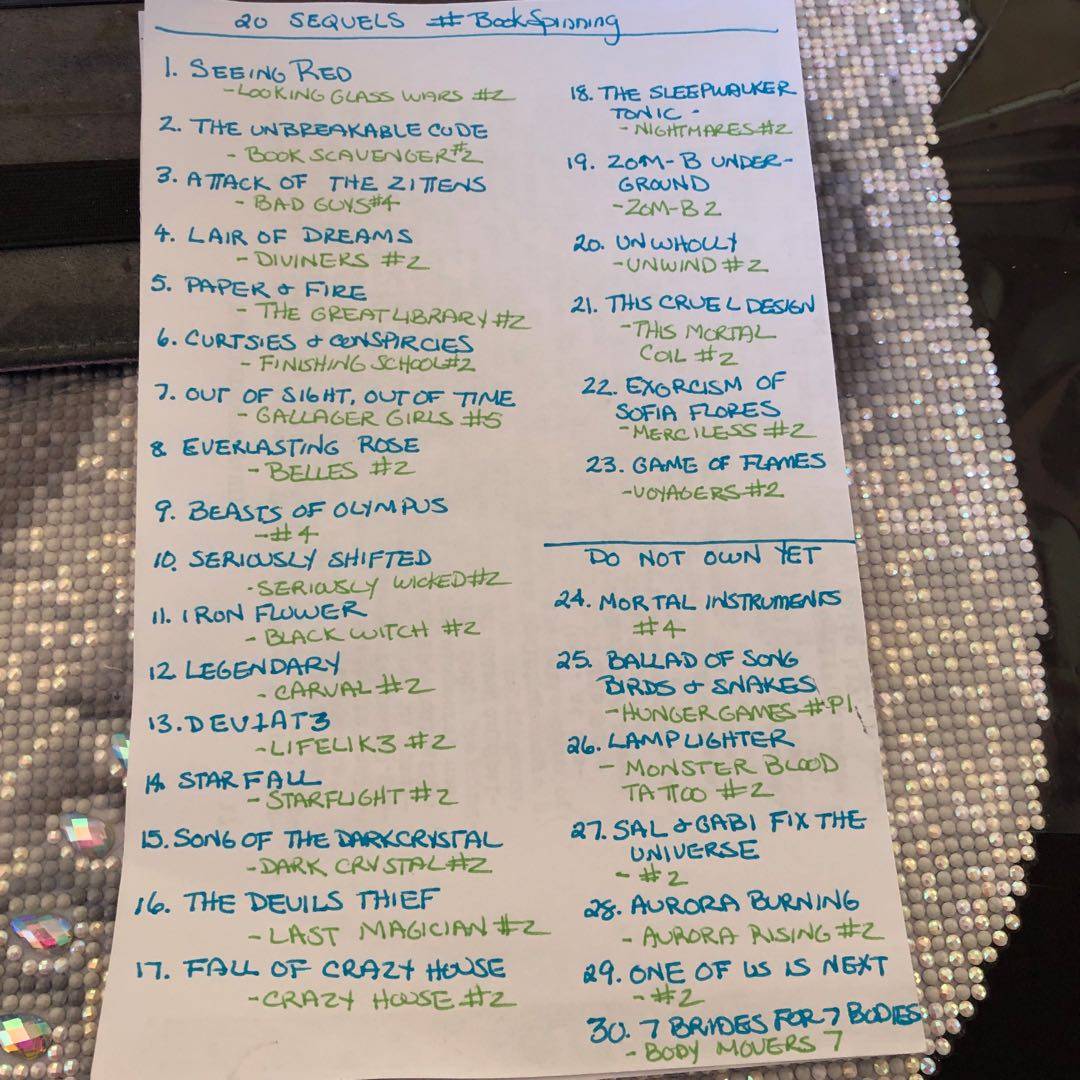 20 SEQUELS #BookSpinning
1. SEEING RED
-LOOKING GLASS WARS #2
2. THE UNBREAKABLE CODE
- BOOK SCAVENGER #2
3. ATTACK OF THE ZITTENS
- BAD GUYS #4
4. LAIR OF DREAMS
- DIVINERS #2
5. PAPER & FIRE
- THE GREAT LIBRARY #2
6. CURTSIES & CONSPIRCIES
- FINISHING SCHOOL #2
7. OUT OF SIGHT, OUT OF TIME
- GALLAGER GIRLS #5
8. EVERLASTING ROSE
- BELLES #2
9. BEASTS OF OLYMPUS
- #4
10. SERIOUSLY SHIFTED
- SERIOUSLY WICKED #2
11. IRON FLOWER
- BLACK WITCH #2
12 LEGENDARY
- CARVAL #2
13. DEV1AT3
- LIFELIK3 #2
14. STARFALL
- STARFLIGHT #2
15. SONG OF THE DARKCRYSTAL
- DARK CRYSTAL #2
16. THE DEVILS THIEF
- LAST MAGICIAN #2
17. FALL OF CRAZY HOUSE
- CRAZY HOUSE #2
18. THE SLEEPWALKER
TONIC -
- NIGHTMARES #2
19. ZOM-B UNDER-
GROUND
- ZOM-B 2
20. UNWHOLLY
- UNWIND #2
21. THIS CRUEL DESIGN
- THIS MORTAL
COIL #2
22. EXORCISM OF
SOFIA FLORES
- MERCILESS #2
23. GAME OF FLAMES
- VOYAGERS #2
DO NOT OWN YET
24. MORTAL INSTRUMENTS
#4
25. BALLAD OF SONG
BIRDS & SNAKES
- HUNGER GAMES #P1
26. LAMPLIGHTER
- MONSTER BLOOD
TATTOO #2
27. SAL & GABI FIX THE
UNIVERSE
- #2
28. AURORA BURNING
- AURORA RISING #2
29. ONE OF US IS NEXT
- #2
30. 7 BRIDES FOR 7 BODIES
- BODY MOVERS 7